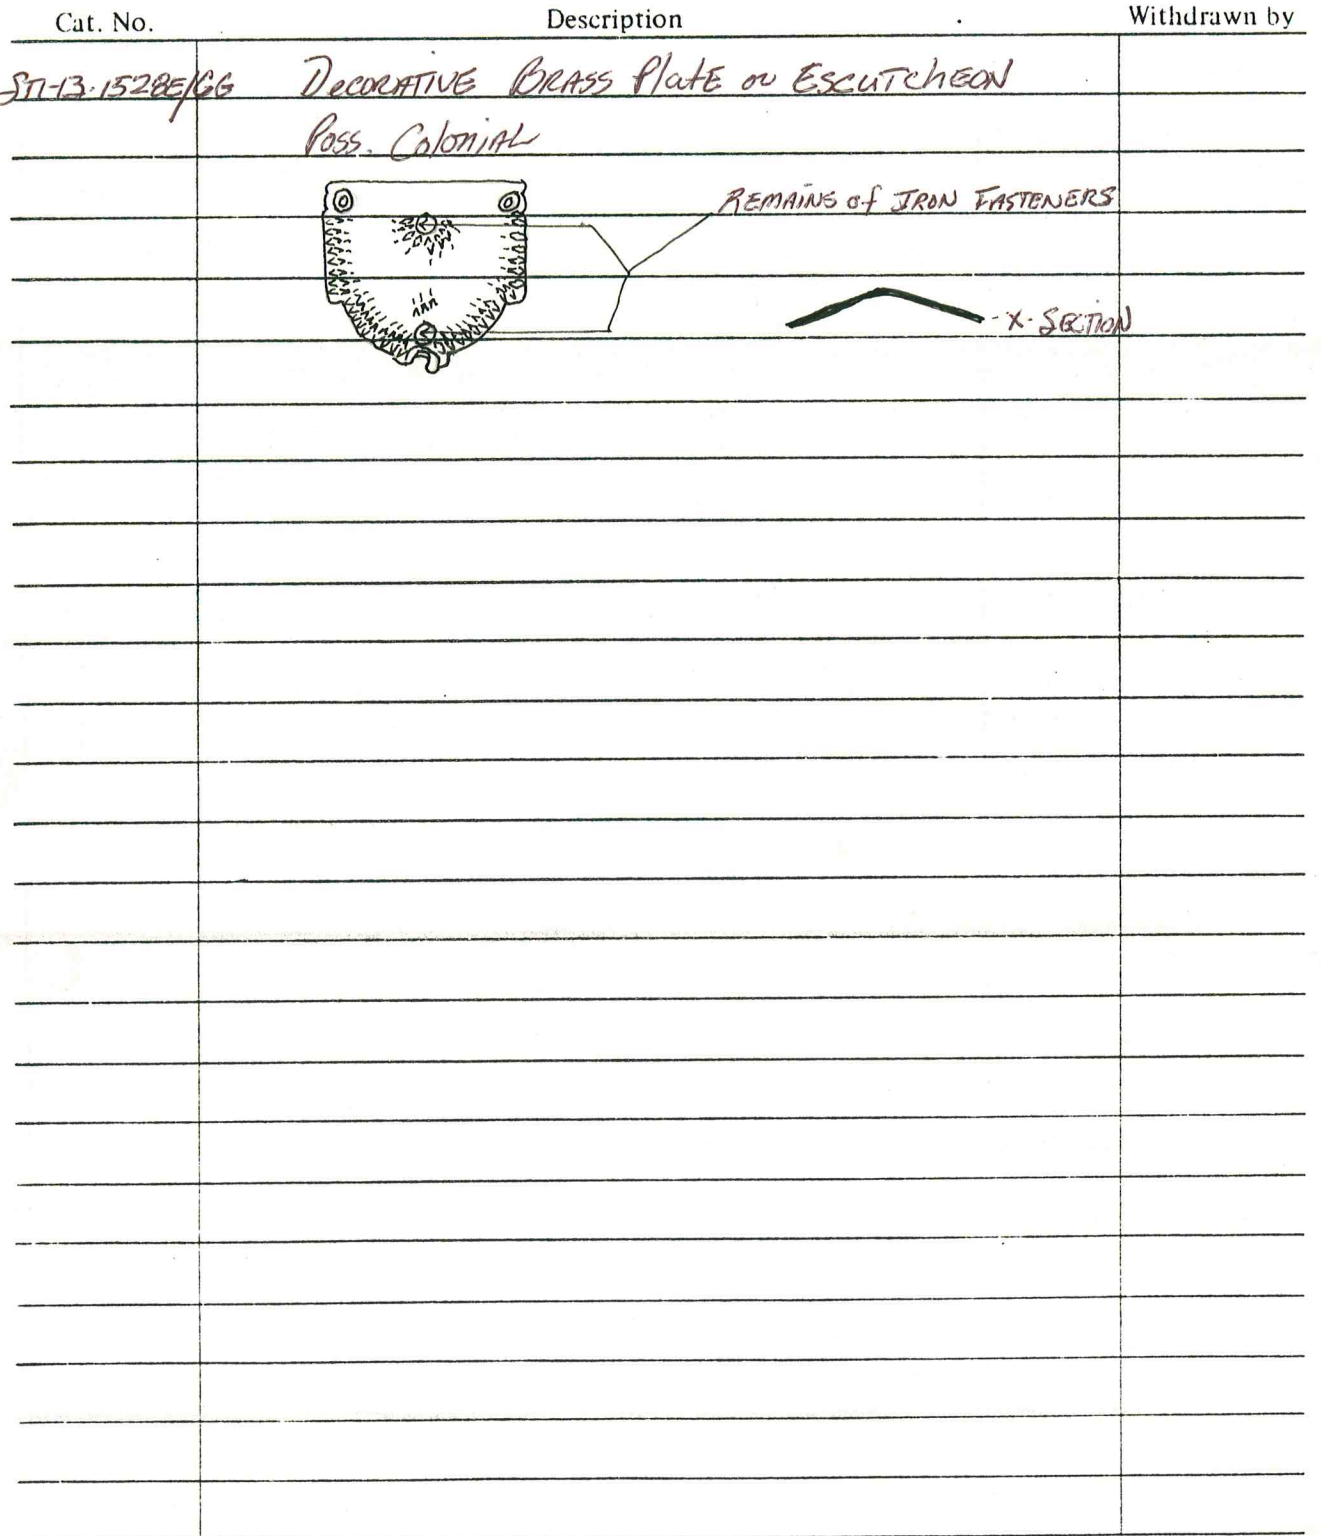 Cat. No. Description Withdrawn by
ST1-13-1528E/GG Decorative Brass Plate or Escutcheon
Poss. Colonial
Remains of Iron Fasteners
X-Section